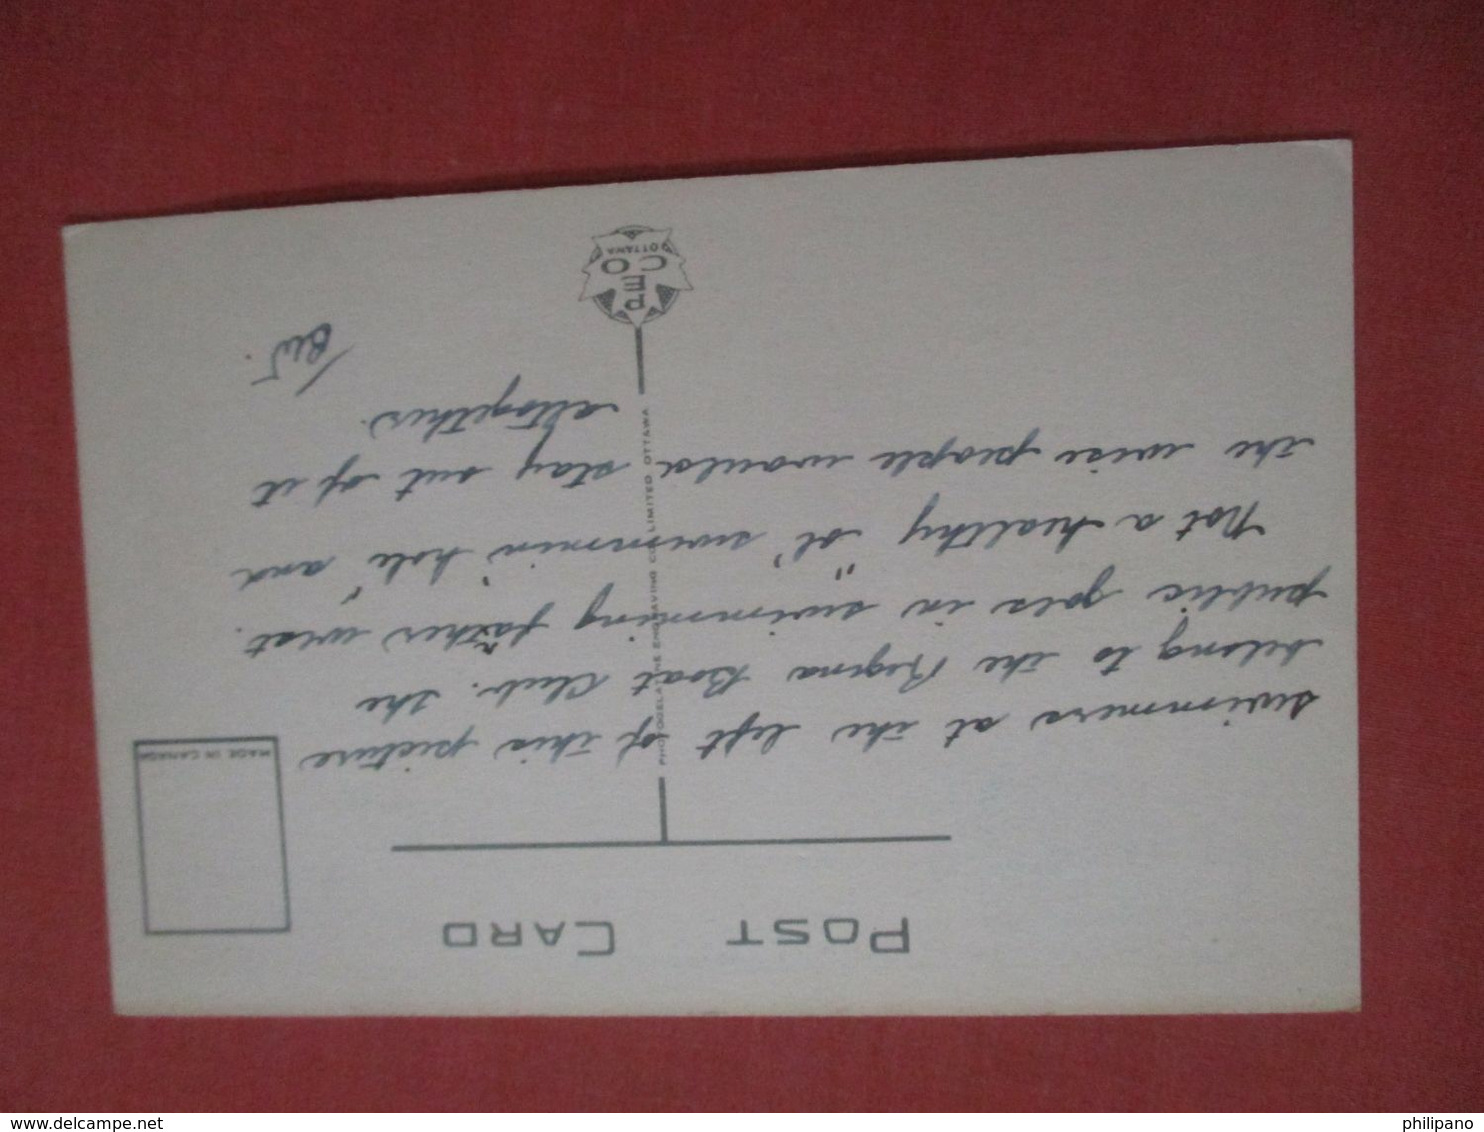 POST CARD
MADE IN CANADA
swimmers at the left of this picture
belong to the Regina Boat Club. The
public goes in swimming farther west.
Not a healthy "ol' swimmin' hole" and
the wise people would stay out of it
altogether.
PHOTOGELATINE ENGRAVING CO. LIMITED OTTAWA
PECO
OTTAWA
philipano